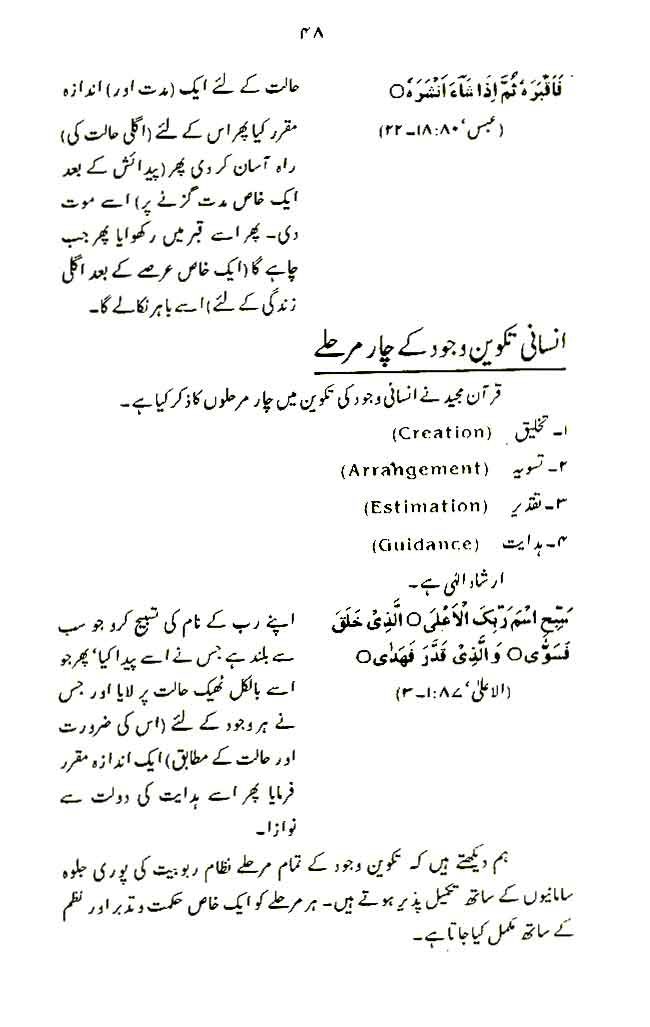 ۴۸
فَاَقْبَرَهٗ ثُمَّ اِذَا شَآءَ اَنْشَرَهٗ○
(عبس ‘ ۸۰:۱۸۔۲۲)
حالت کے لئے ایک (مدت اور) اندازہ
مقرر کیا پھر اس کے لئے (اگلی حالت کی)
راہ آسان کر دی پھر (پیدائش کے بعد
ایک خاص مدت گزنے پر) اسے موت
دی۔ پھر اسے قبر میں رکھوایا پھر جب
چاہے گا (ایک خاص عرصے کے بعد اگلی
زندگی کے لئے) اسے باہر نکالے گا۔
انسانی تکوین وجود کے چار مرحلے
قرآن مجید نے انسانی وجود کی تکوین میں چار مرحلوں کا ذکر کیا ہے۔
۱۔ تخلیق (Creation)
۲۔ تسویہ (Arrangement)
۳۔ تقدیر (Estimation)
۴۔ ہدایت (Guidance)
ارشاد الٰہی ہے۔
سَبِّحِ اسْمَ رَبِّکَ الْاَعْلَی○ الَّذِیْ خَلَقَ
فَسَوّٰی○ وَ الَّذِیْ قَدَّرَ فَهَدٰی○
(الاعلیٰ ‘ ۸۷:۱۔۳)
اپنے رب کے نام کی تسبیح کرو جو سب
سے بلند ہے جس نے اسے پیدا کیا‘ پھر جو
اسے بالکل ٹھیک حالت پر لایا اور جس
نے ہر وجود کے لئے (اس کی ضرورت
اور حالت کے مطابق) ایک اندازہ مقرر
فرمایا پھر اسے ہدایت کی دولت سے
نوازا۔
ہم دیکھتے ہیں کہ تکوین وجود کے تمام مرحلے نظام ربوبیت کی پوری جلوہ
سامانیوں کے ساتھ تکمیل پذیر ہوتے ہیں۔ ہر مرحلے کو ایک خاص حکمت و تدبر اور نظم
کے ساتھ مکمل کیا جاتا ہے۔